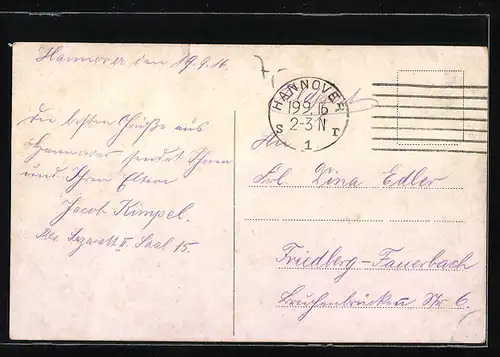 Hannover den 19.9.16.
7,-
Die besten Grüße aus
Hannover sendet Ihnen
und Ihren Eltern
Jacob Kimpel.
Res. Lazarett V. Saal 15.
HANNOVER
19.9.16
2-3 N
S 1 r
An
Frl. Lina Edler
Friedberg-Fauerbach
Bruchenbrücken Str 6.